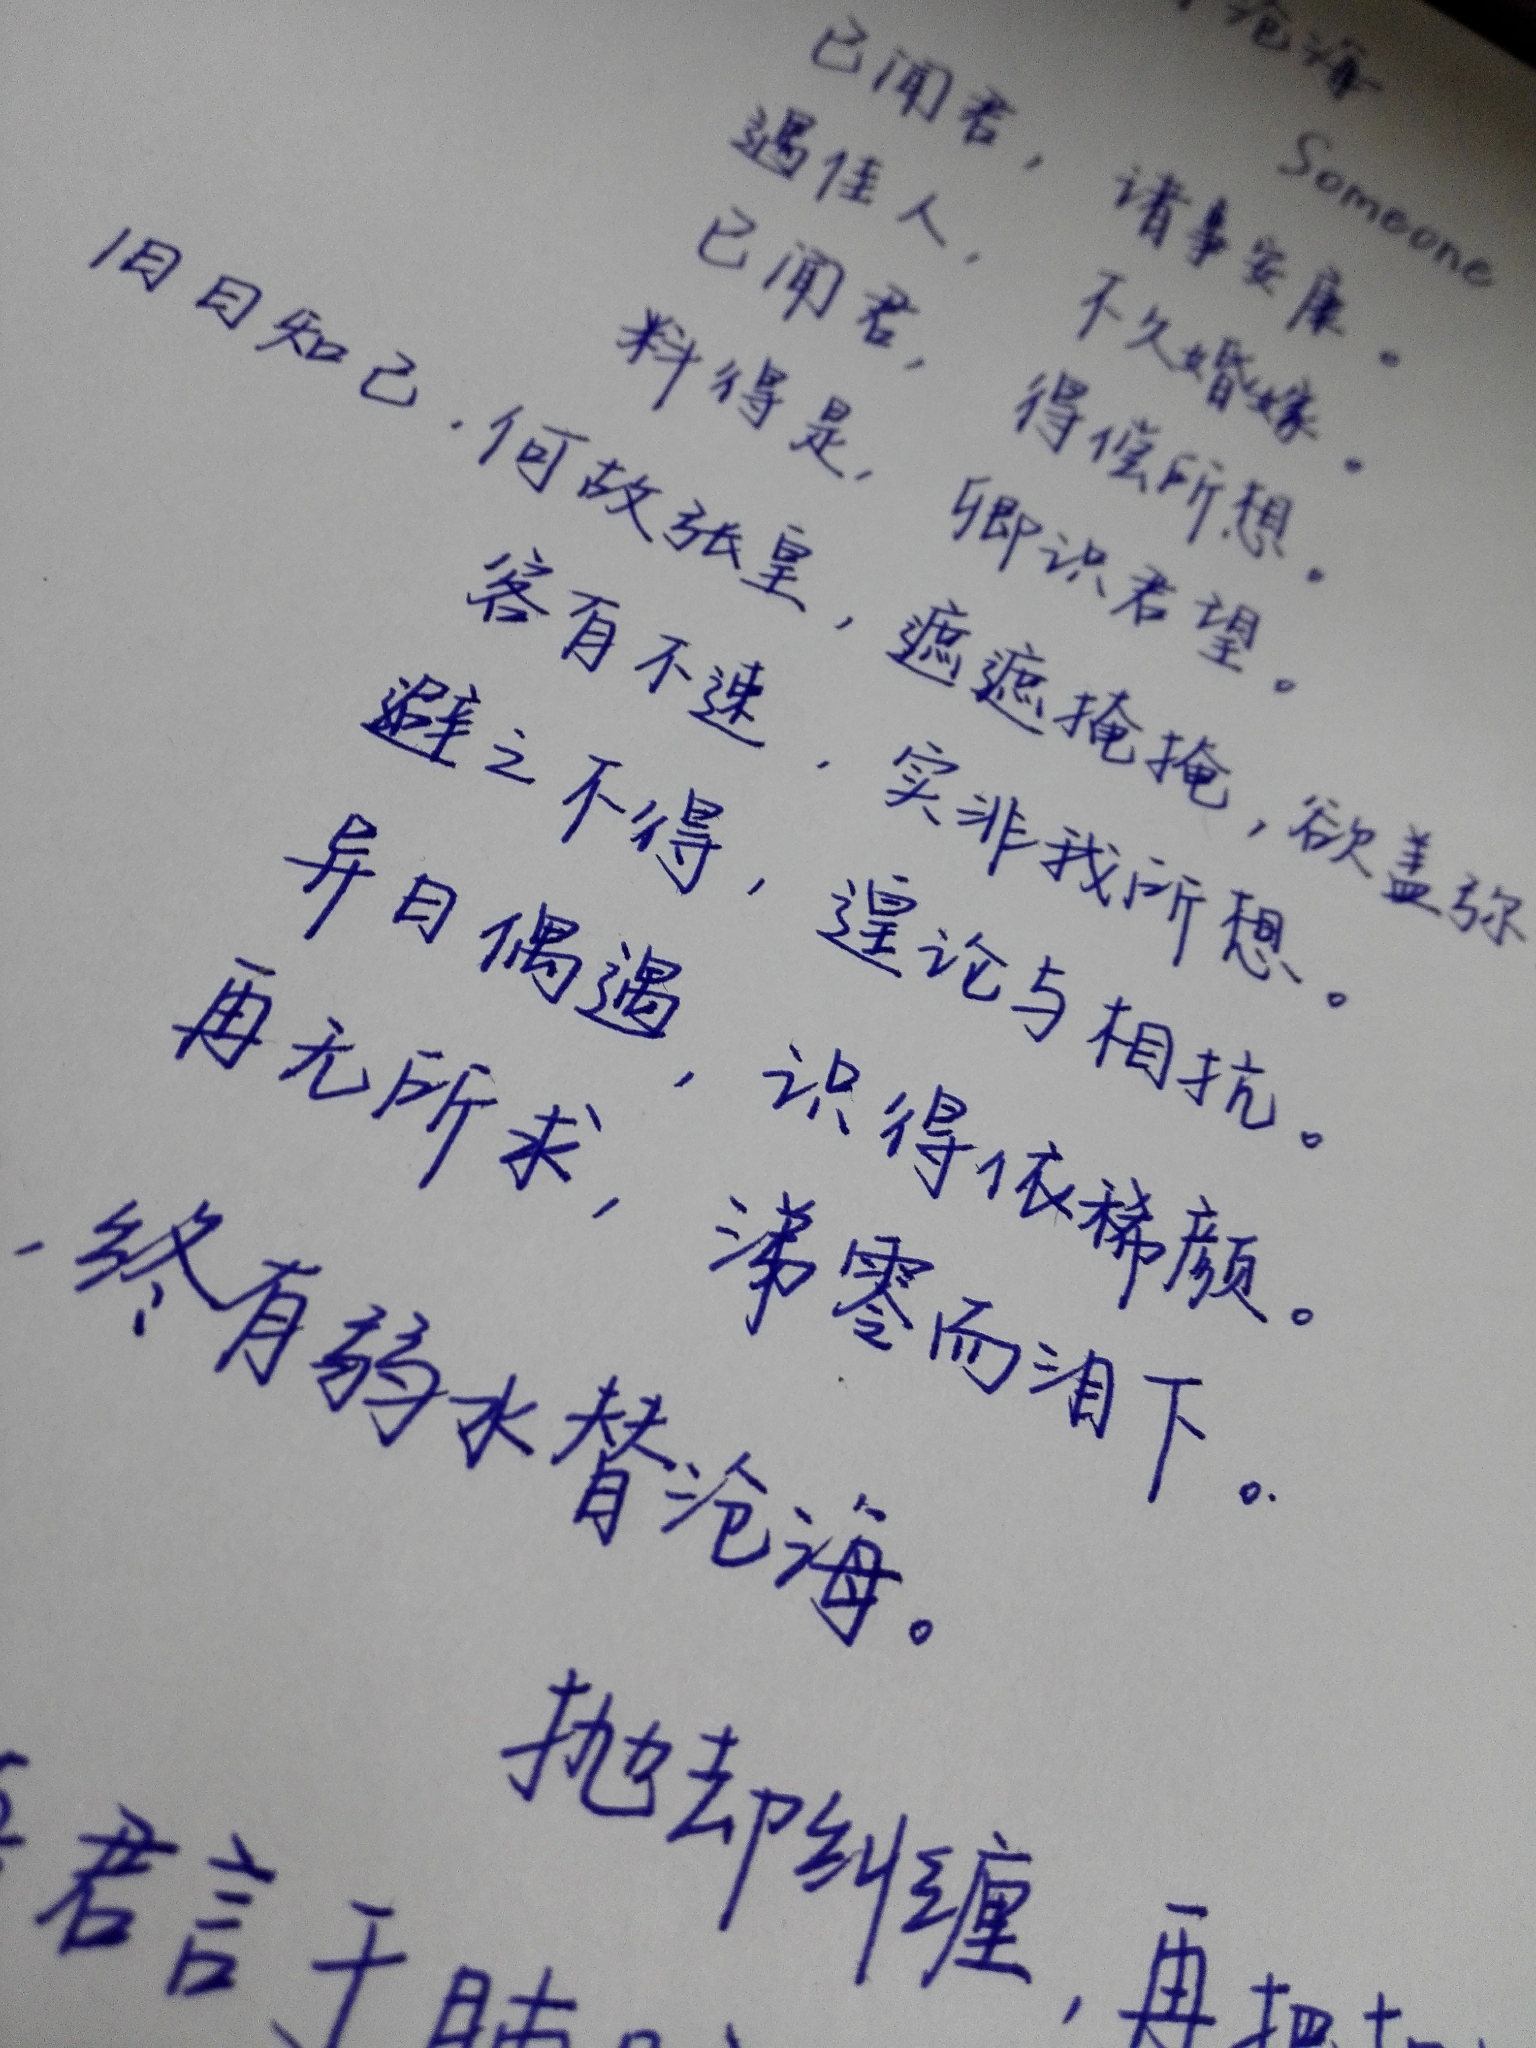 沧海
Someone
已闻君，诸事安康。
遇佳人，不久婚嫁。
已闻君，得偿所想。
料得是，卿识君望。
旧日知己，何故张皇，遮遮掩掩，欲盖弥
客有不速，实非我所想。
避之不得，遑论与相抗。
异日偶遇，识得依稀颜。
再无所求，涕零而泪下。
，终有弱水替沧海。
抛却纠缠，再把
君言于肺